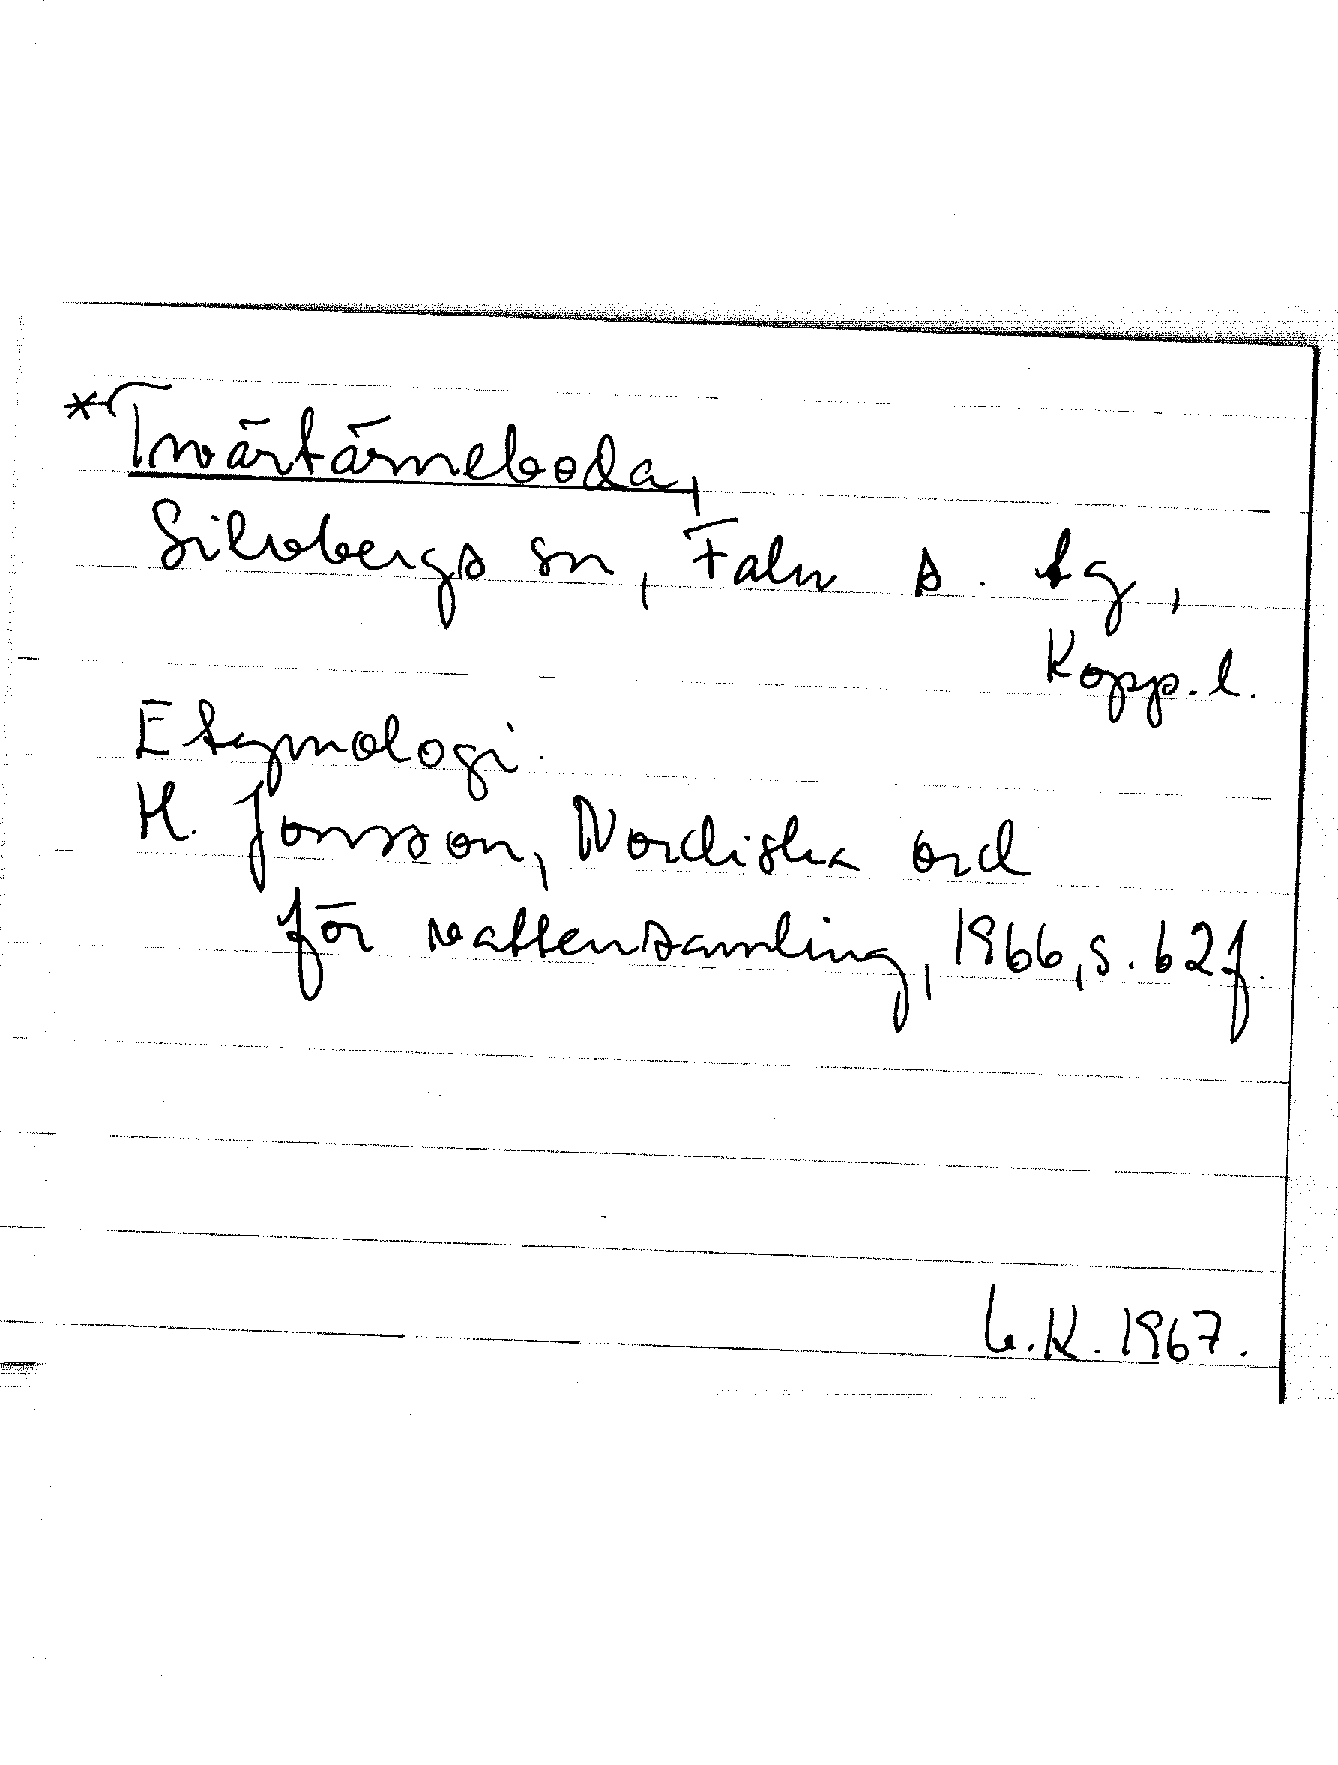 *Twärtärneboda,
Silvbergs sn, Falu s. tg,
Kopp. l.
Etymologi.
H. Jonsson, Nordiska ord
för vattensamling, 1966, s. 62f.
L.K. 1967.